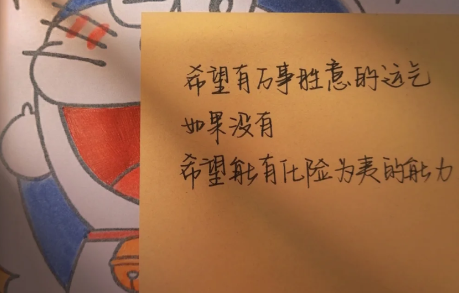 希望有万事胜意的运气
如果没有
希望能有化险为夷的能力